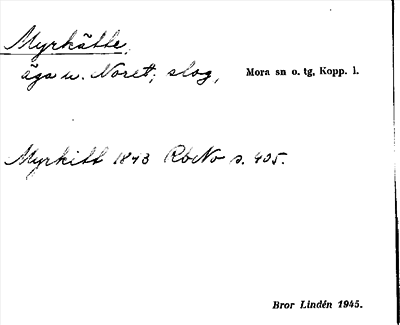 Myrkätte,
äga u. Noret; slog, Mora sn o. tg, Kopp. l.
Myrkitt 1843 RbNo s. 405.
Bror Lindén 1945.